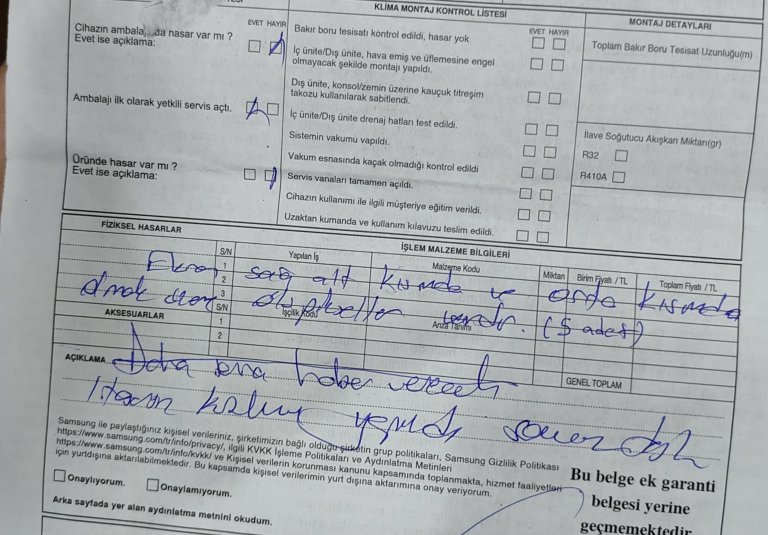 KLİMA MONTAJ KONTROL LİSTESİ
EVET HAYIR
Cihazın ambalajında hasar var mı ?
Evet ise açıklama:
Ambalajı ilk olarak yetkili servis açtı.
Üründe hasar var mı ?
Evet ise açıklama:
EVET HAYIR
Bakır boru tesisatı kontrol edildi, hasar yok
İç ünite/Dış ünite, hava emiş ve üflemesine engel
olmayacak şekilde montajı yapıldı.
Dış ünite, konsol/zemin üzerine kauçuk titreşim
takozu kullanılarak sabitlendi.
İç ünite/Dış ünite drenaj hatları test edildi.
Sistemin vakumu yapıldı.
Vakum esnasında kaçak olmadığı kontrol edildi
Servis vanaları tamamen açıldı.
Cihazın kullanımı ile ilgili müşteriye eğitim verildi.
Uzaktan kumanda ve kullanım kılavuzu teslim edildi.
MONTAJ DETAYLARI
Toplam Bakır Boru Tesisat Uzunluğu(m)
İlave Soğutucu Akışkan Miktarı(gr)
R32
R410A
FİZİKSEL HASARLAR
İŞLEM MALZEME BİLGİLERİ
S/N Yapılan İş Malzeme Kodu Miktarı Birim Fiyatı / TL Toplam Fiyatı / TL
1
2
3
Ekran sağ alt kısımda ve orta kısımda
olmak üzere ölü pikseller vardır. (5 adet)
AKSESUARLAR
S/N İşçilik Kodu Arıza Tanımı
1
2
GENEL TOPLAM
AÇIKLAMA
Daha sonra haber verecek
Samsung ile paylaştığınız kişisel verileriniz, şirketimizin bağlı olduğu şirketin grup politikaları, Samsung Gizlilik Politikası
https://www.samsung.com/tr/info/privacy/, ilgili KVKK İşleme Politikaları ve Aydınlatma Metinleri
https://www.samsung.com/tr/info/kvkk/ ve Kişisel verilerin korunması kanunu kapsamında toplanmakta, hizmet faaliyetleri
için yurtdışına aktarılabilmektedir. Bu kapsamda kişisel verilerimin yurt dışına aktarımına onay veriyorum.
Onaylıyorum. Onaylamıyorum.
Arka sayfada yer alan aydınlatma metnini okudum.
Bu belge ek garanti
belgesi yerine
geçmemektedir